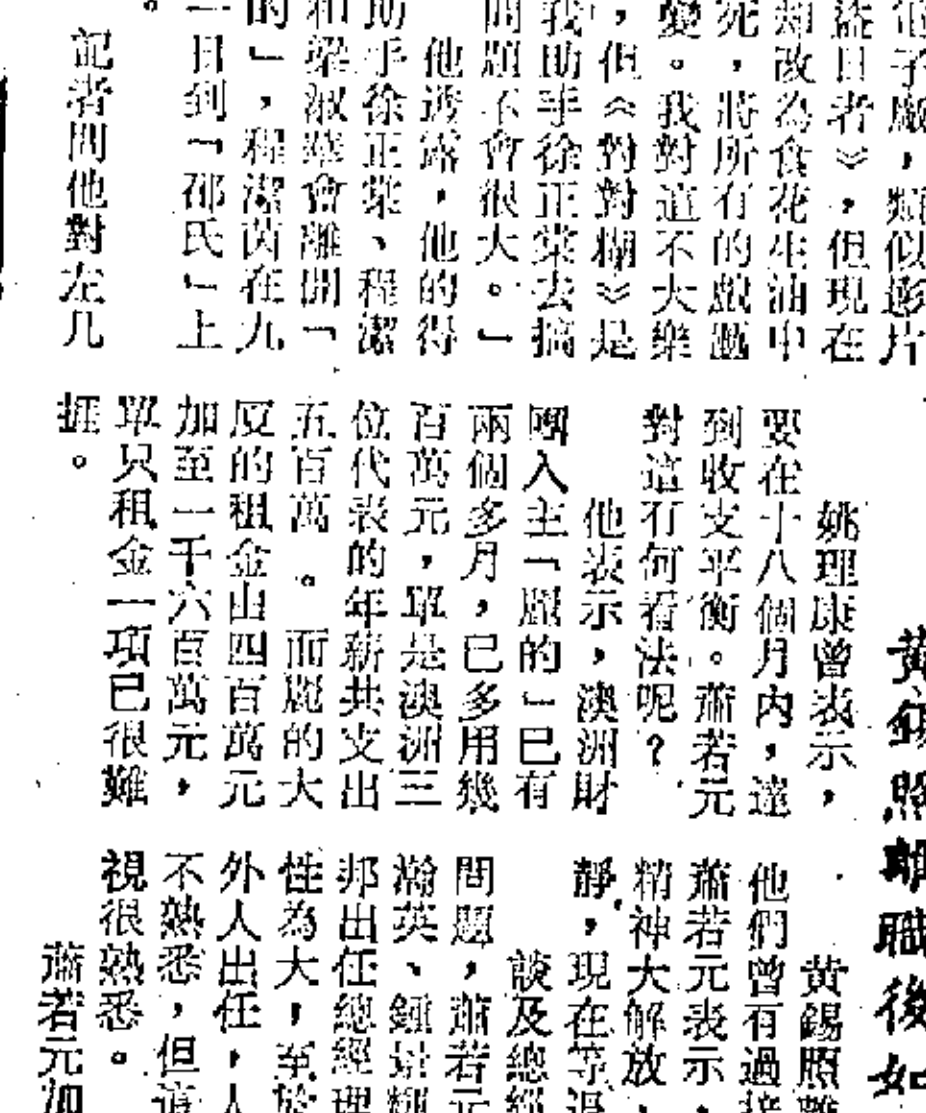 電子廠，類似影片
盜日者》，但現在
却改為食花生油中
死，將所有的戲瓹
變。我對這不大樂
，但《對對糊》是
我助手徐正棠去搞
問題不會很大。」
他透露，他的得
助手徐正棠、程潔
和梁淑華會離開「
的」，程潔茵在九
一日到「邵氏」上
。
記者問他對左几
姚理康曾表示，
要在十八個月內，達
到收支平衡。蕭若元
對這有何看法呢？
他表示，澳洲財
團入主「麗的」已有
兩個多月，已多用幾
百萬元，單是澳洲三
位代表的年薪共支出
五百萬。而麗的大
廈的租金由四百萬元
加至一千六百萬元，
單只租金一項已很難
捱。
黃錫照離職後如
黃錫照離
他們曾有過接
蕭若元表示，
精神大解放，
靜，現在等退
談及總經
問題，蕭若元
瀚英、鍾景輝
邦出任總經理
性為大，至於
外人出任，人
不熟悉，但這
視很熟悉。
蕭若元加